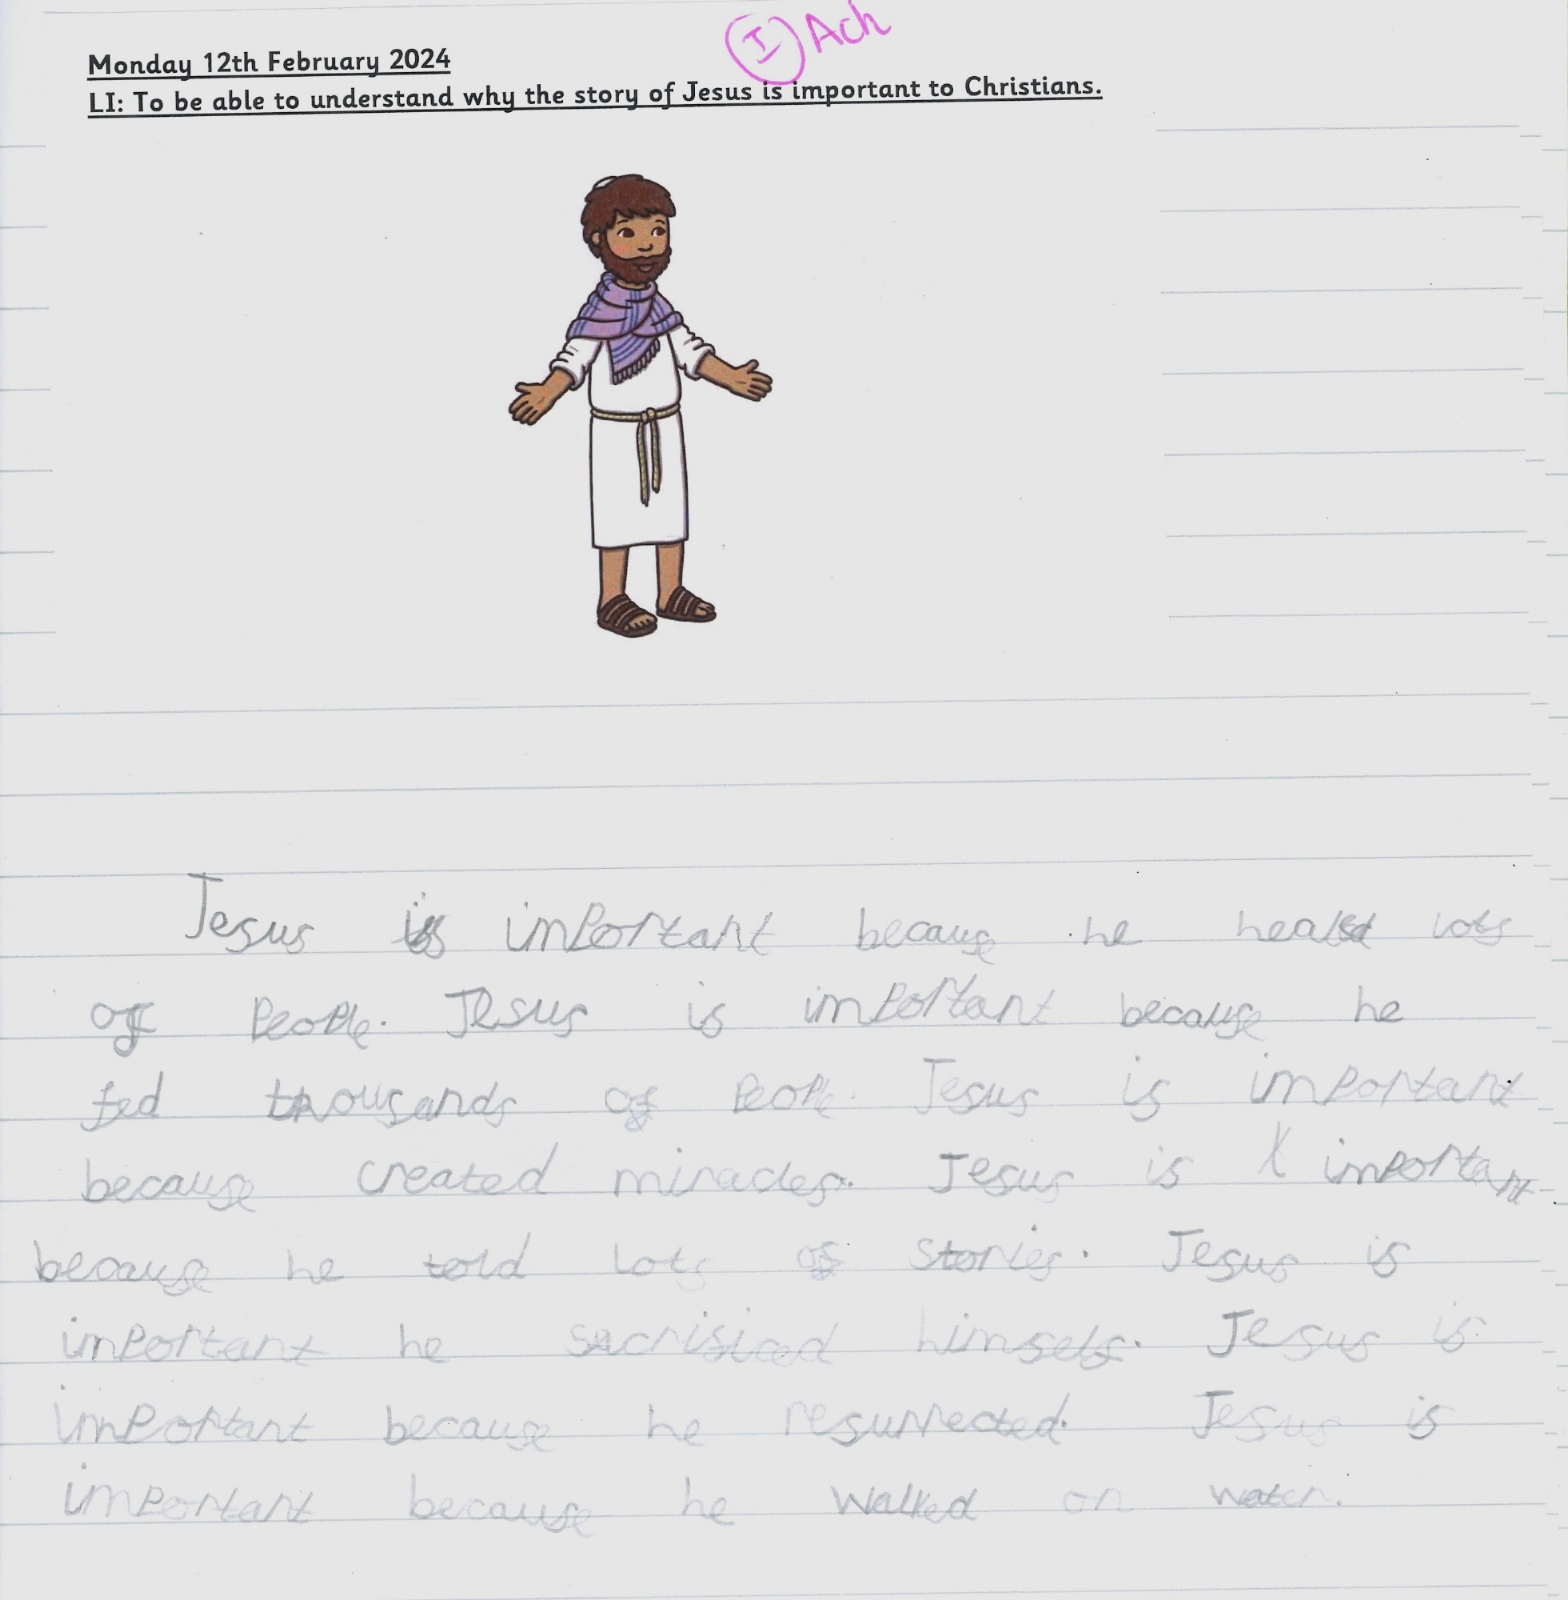 I Ach
Monday 12th February 2024
LI: To be able to understand why the story of Jesus is important to Christians.
Jesus is important because he healed lots
of People. Jesus is important because he
fed thousands of People. Jesus is important
because created miracles. Jesus is important
because he told lots of stories. Jesus is
important he sacrisiced himself. Jesus is
important because he resurrected. Jesus is
important because he walked on water.